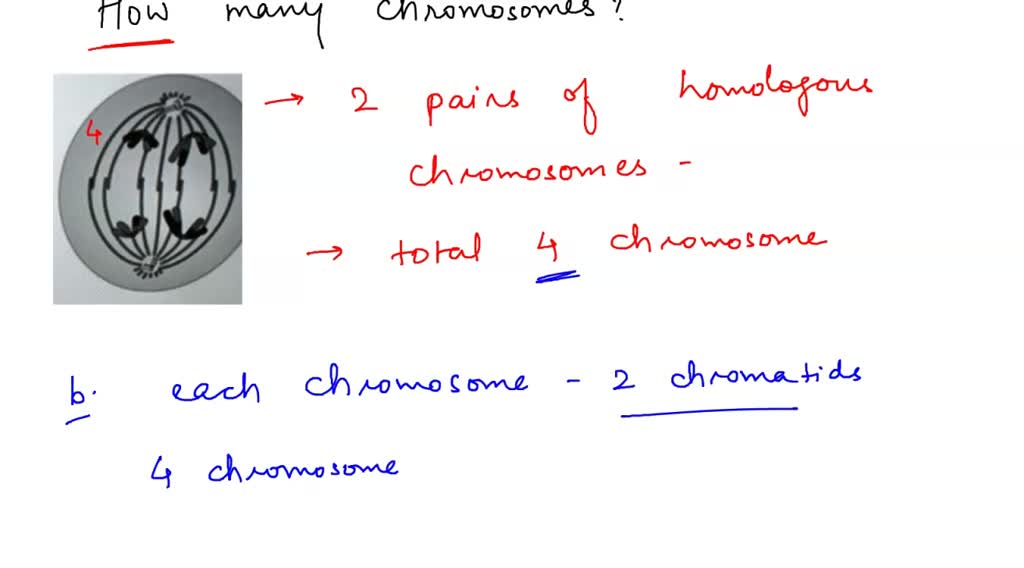 How many chromosomes?
4
→ 2 pairs of homologous
chromosomes -
→ total 4 chromosome
b. each chromosome - 2 chromatids
4 chromosome